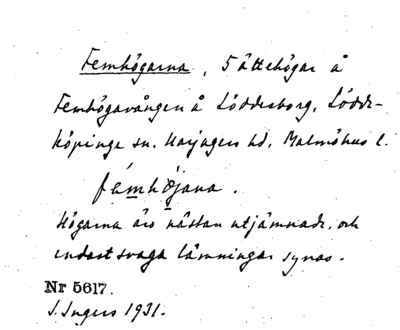 Femhögarna, 5 ättehögar å
Femhögavången å Löddesborg, Lödde-
köpinge sn. Harjagers hd, Malmöhus l.
fémhö̀jana.
Högarna äro nästan utjämnade, och
endast svaga lämningar synas.
Nr 5617.
I. Ingers 1931.